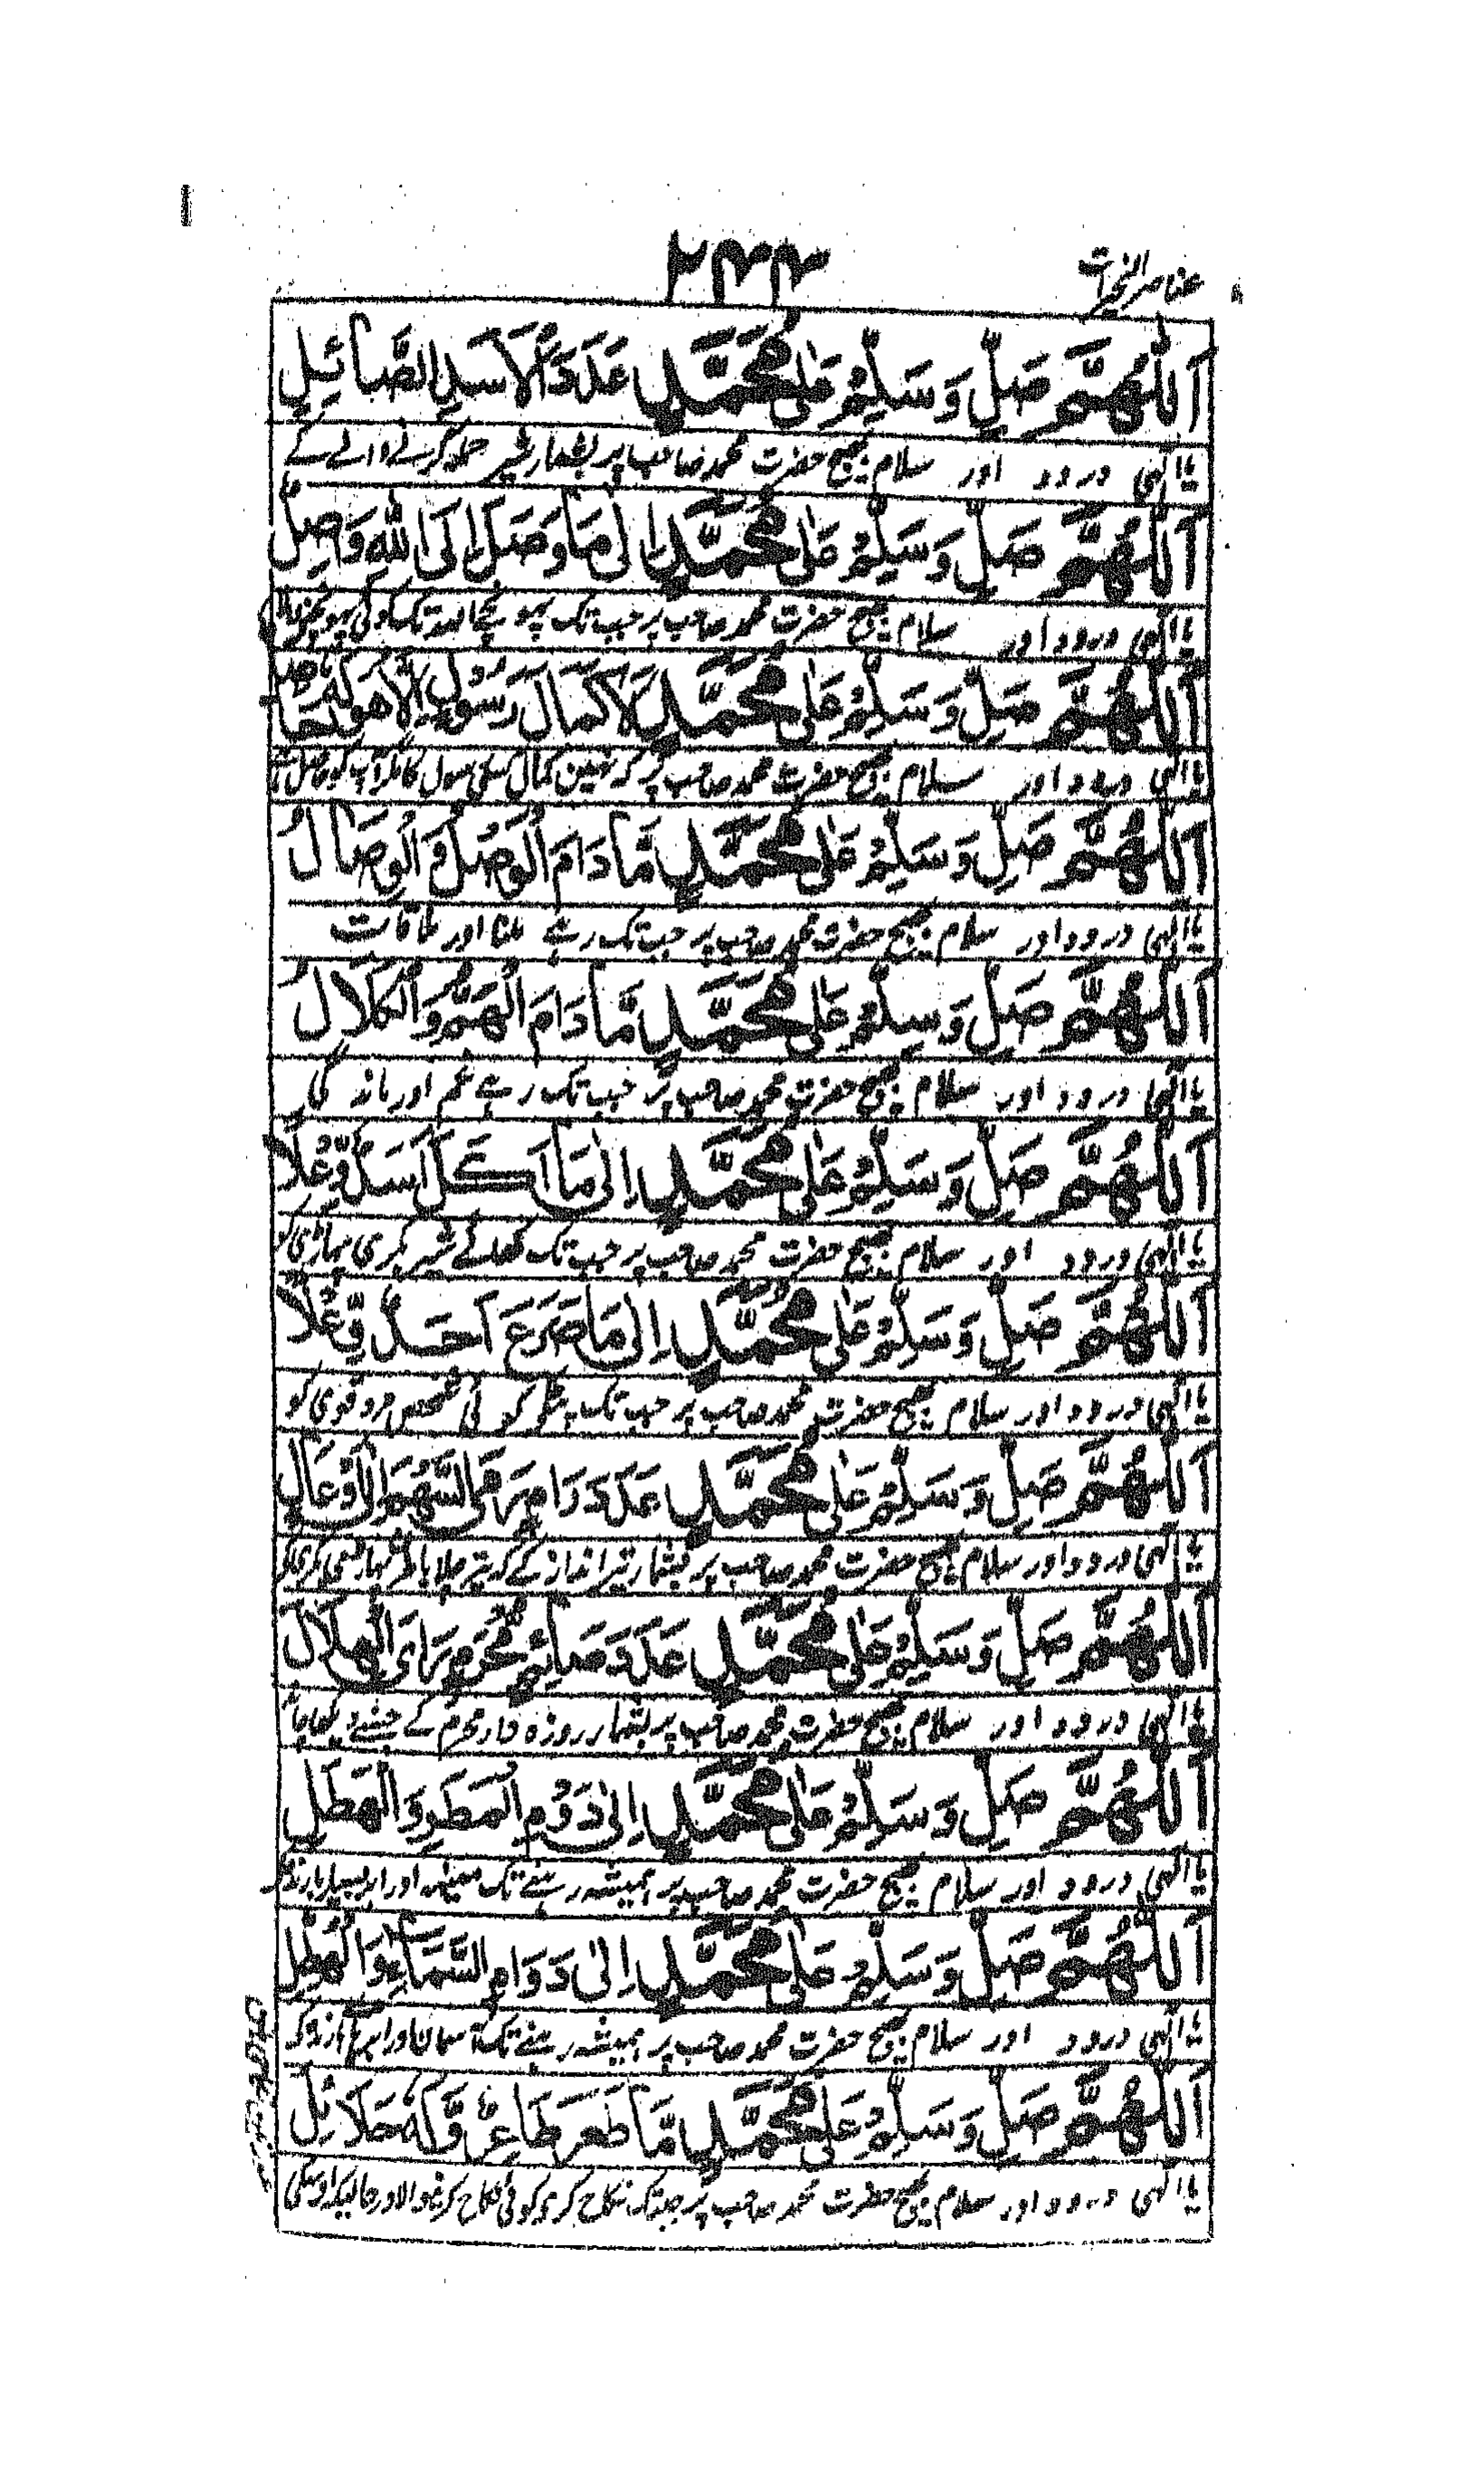 عناصر الخیرات
۲۴۴
اَللّٰهُمَّ صَلِّ وَسَلِّمْ عَلٰی مُحَمَّدٍ عَدَدَ الْاَسَدِ الصَّائِلِ
یا الٰہی درود اور سلام بھیج حضرت محمد صاحب پر بشمار شیر حملہ کرنے والے کے
اَللّٰهُمَّ صَلِّ وَسَلِّمْ عَلٰی مُحَمَّدٍ اِلٰی مَا وَصَلَ اِلَی اللّٰهِ وَاصِلٌ
یا الٰہی درود اور سلام بھیج حضرت محمد صاحب پر جب تک پہونچے اللہ تک کوئی پہونچنے والا
اَللّٰهُمَّ صَلِّ وَسَلِّمْ عَلٰی مُحَمَّدٍ لَا كَمَالَ رَسُوْلٍ اِلَّا هُوَ لَهٗ حَاصِلٌ
یا الٰہی درود اور سلام بھیج حضرت محمد صاحب پر کہ نہین کمال کسی رسول کا مگر آپ کو حاصل ہے
اَللّٰهُمَّ صَلِّ وَسَلِّمْ عَلٰی مُحَمَّدٍ مَّا دَامَ الْوَصْلُ وَالْوِصَالُ
یا الٰہی درود اور سلام بھیج حضرت محمد صاحب پر جب تک رہے ملنا اور ملاقات
اَللّٰهُمَّ صَلِّ وَسَلِّمْ عَلٰی مُحَمَّدٍ مَّا دَامَ الْهَمُّ وَالْكَلَالُ
یا الٰہی درود اور سلام بھیج حضرت محمد صاحب پر جب تک رہے غم اور ماندگی
اَللّٰهُمَّ صَلِّ وَسَلِّمْ عَلٰی مُحَمَّدٍ اِلٰی مَا اَكَلَ اَسَدٌ وَّعْلًا
یا الٰہی درود اور سلام بھیج حضرت محمد صاحب پر جب تک کھائے شیر بکری پہاڑی کو
اَللّٰهُمَّ صَلِّ وَسَلِّمْ عَلٰی مُحَمَّدٍ اِلٰی مَا صَرَعَ اَحَدٌ وَّغْلًا
یا الٰہی درود اور سلام بھیج حضرت محمد صاحب پر جب تک پٹکے کوئی شخص مرد قوی کو
اَللّٰهُمَّ صَلِّ وَسَلِّمْ عَلٰی مُحَمَّدٍ عَدَدَ رَامٍ رَمَی السَّهْمَ اِلَی الْاَوْعَالِ
یا الٰہی درود اور سلام بھیج حضرت محمد صاحب پر بشمار تیر انداز کے کہ تیر چلایا طرف پہاڑی بکری کو
اَللّٰهُمَّ صَلِّ وَسَلِّمْ عَلٰی مُحَمَّدٍ عَدَدَ صَائِمِ مُحَرَّمٍ رَاَی الْهِلَالَ
یا الٰہی درود اور سلام بھیج حضرت محمد صاحب پر بشمار روزہ دار محرم کے جسنے دیکھا چاند
اَللّٰهُمَّ صَلِّ وَسَلِّمْ عَلٰی مُحَمَّدٍ اِلٰی دَوْمِ الْمَطَرِ وَالْهَطَلِ
یا الٰہی درود اور سلام بھیج حضرت محمد صاحب پر ہمیشہ رہنے تک مینہہ اور ابر بسیار بارندہ
اَللّٰهُمَّ صَلِّ وَسَلِّمْ عَلٰی مُحَمَّدٍ اِلٰی دَوَامِ السَّمَاءِ وَالْهُطْلِ
یا الٰہی درود اور سلام بھیج حضرت محمد صاحب پر ہمیشہ رہنے تک آسمان اور ابرہائے بارندہ کے
اَللّٰهُمَّ صَلِّ وَسَلِّمْ عَلٰی مُحَمَّدٍ مَّا طَعَرَ طَاعِرٌ وَّلَهٗ حَلَائِلُ
یا الٰہی درود اور سلام بھیج حضرت محمد صاحب پر جب تک نکاح کرے کوئی نکاح کرنیوالا درحالیکہ اوسکی